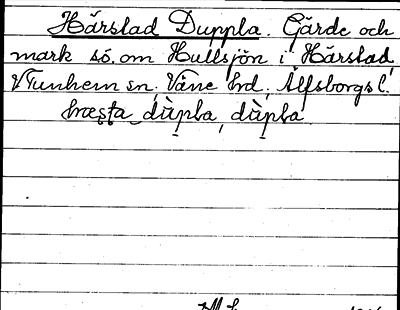 Härstad Duppla. Gärde och
mark sö. om Hullsjön i Härstad,
VTunhem sn, Väne hd, Älfsborgs l.
hæsta dùpla, dùpla